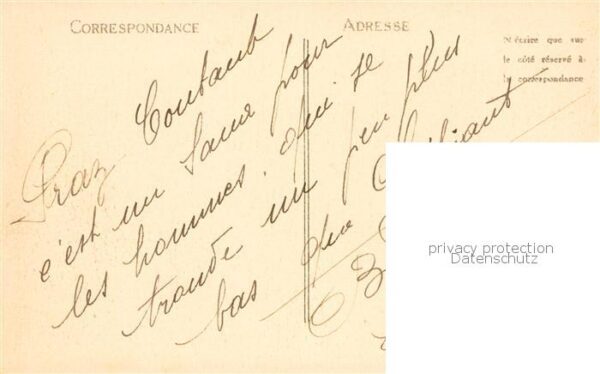 CORRESPONDANCE
ADRESSE
N'écrire que sur
le côté réservé à
la correspondance
Praz Coutant
c'est un Sana pour
les hommes. qui se
trouve un peu plus
bas du
privacy protection
Datenschutz